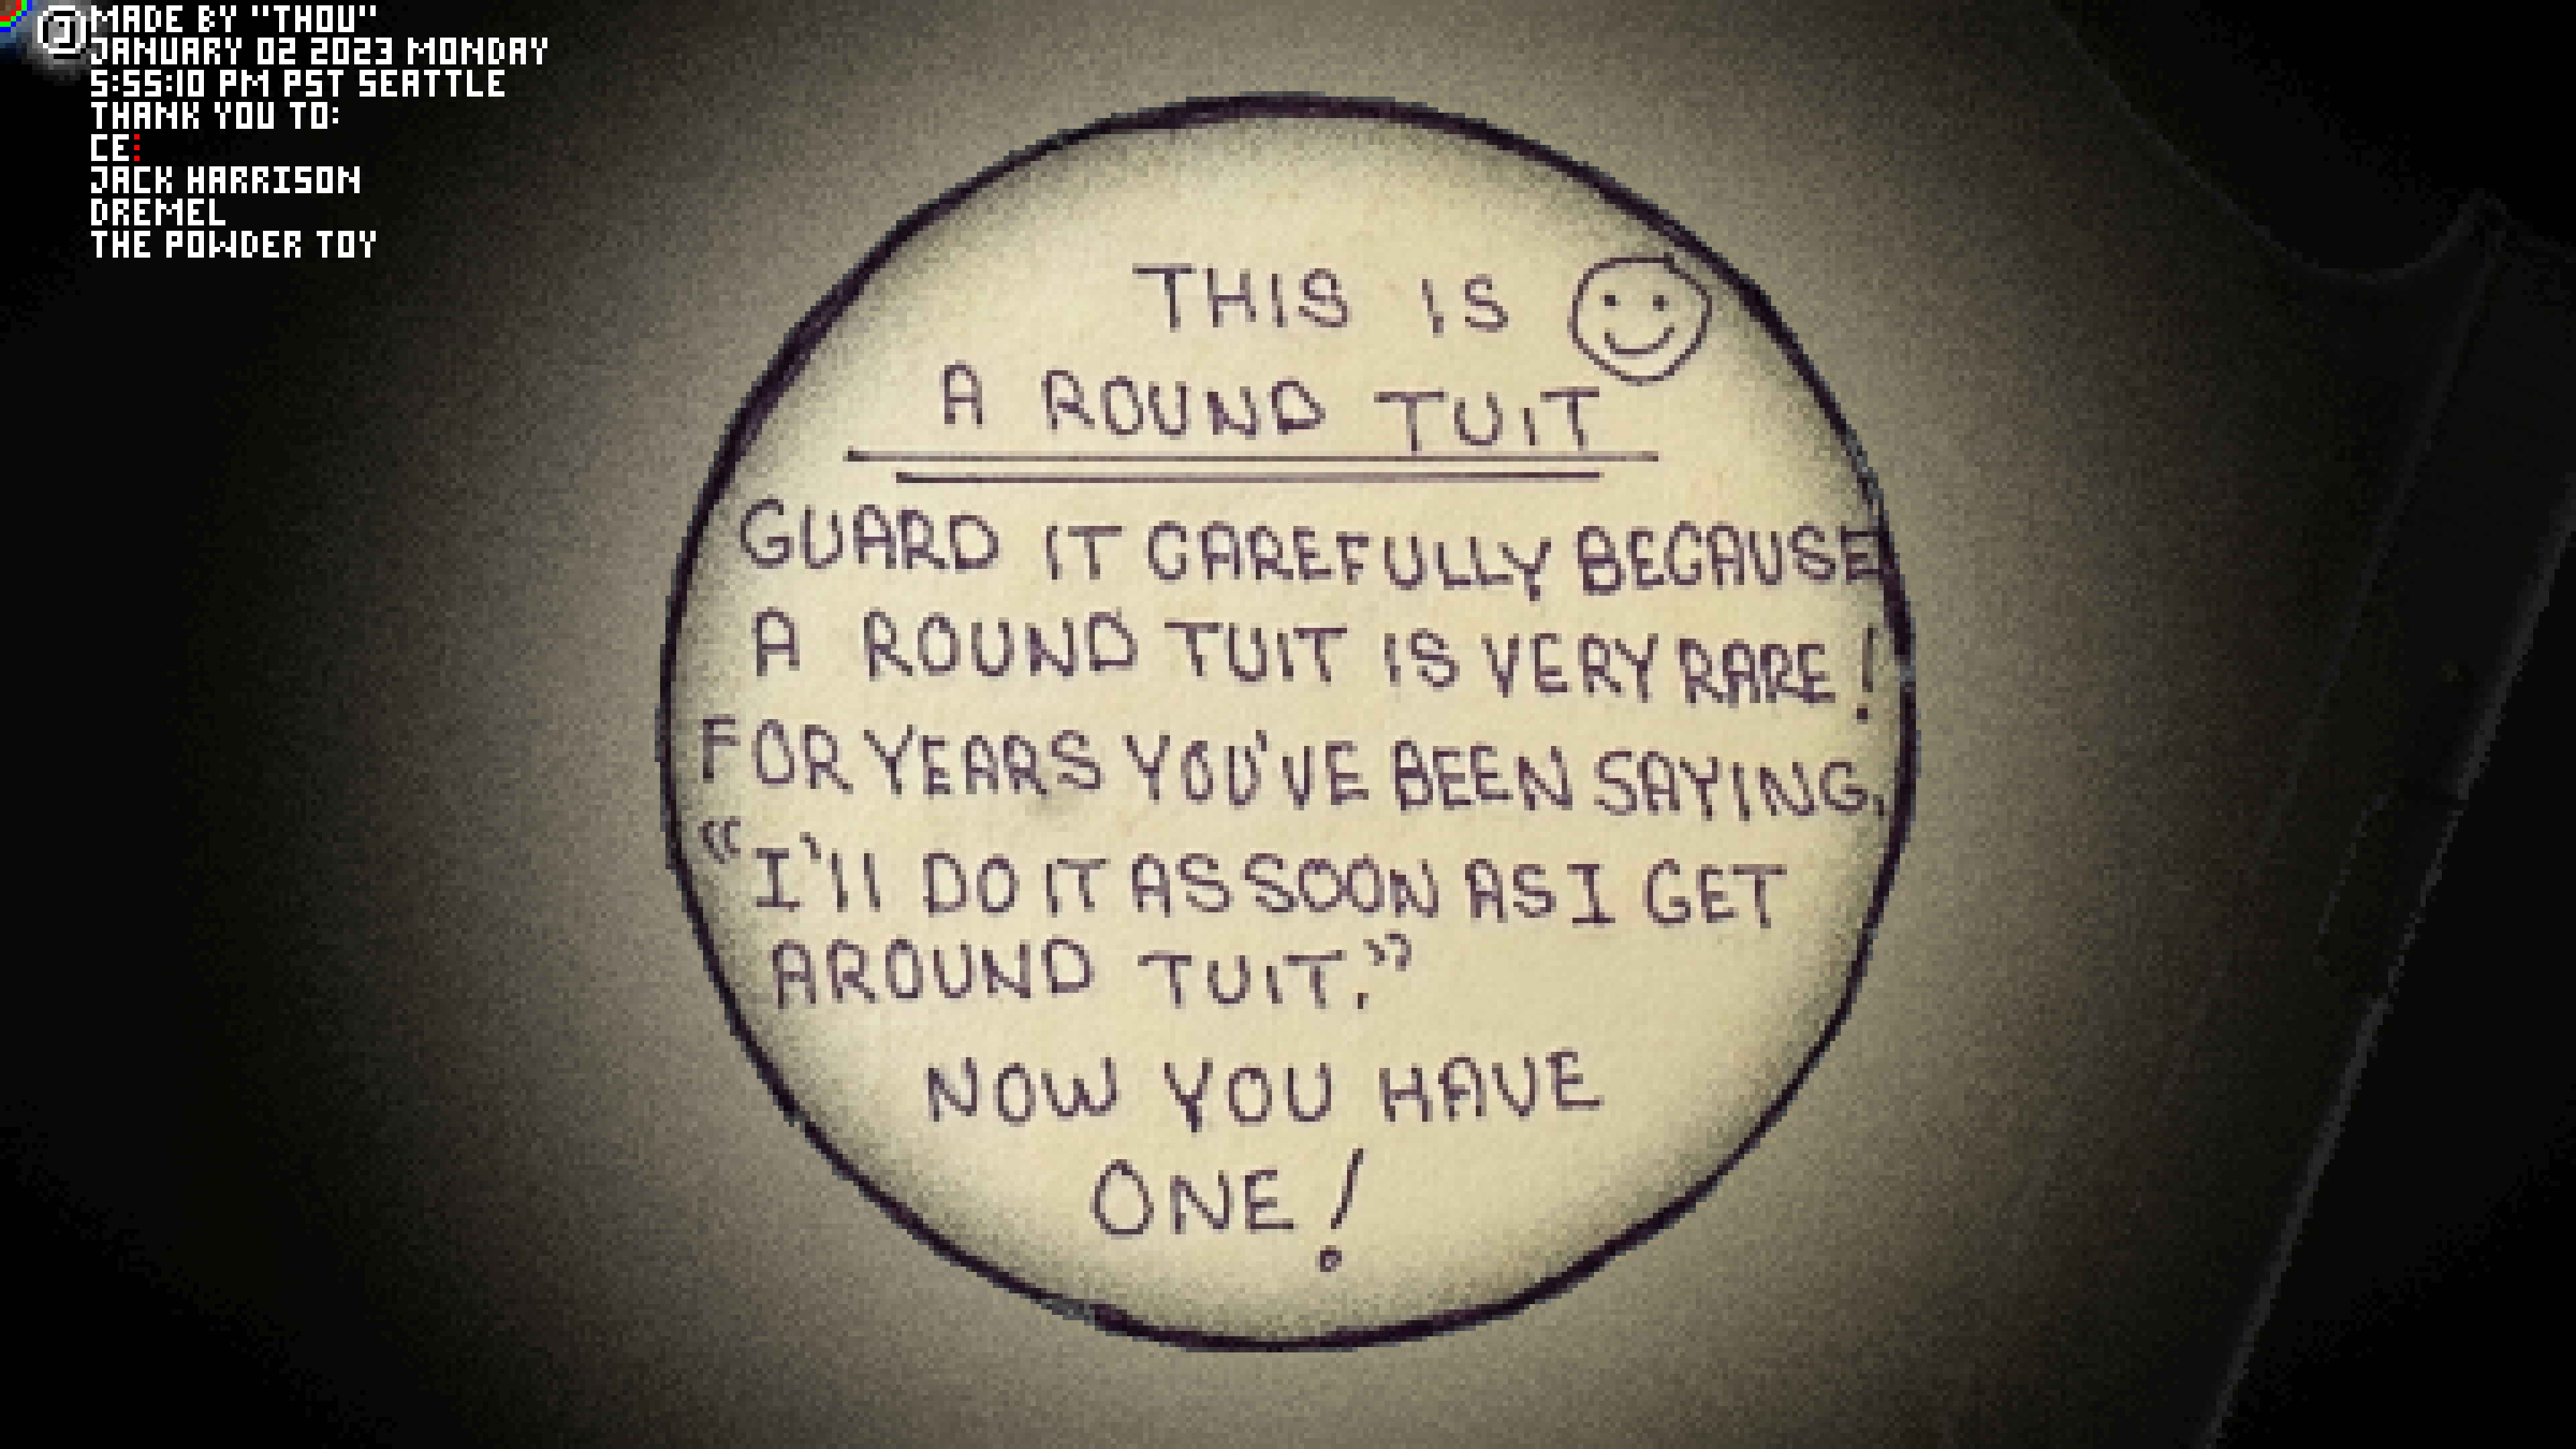 MADE BY "THOU"
JANUARY 02 2023 MONDAY
5:55:10 PM PST SEATTLE
THANK YOU TO:
CE:
JACK HARRISON
DREMEL
THE POWDER TOY
THIS IS
A ROUND TUIT
GUARD IT CAREFULLY BECAUSE
A ROUND TUIT IS VERY RARE!
FOR YEARS YOU'VE BEEN SAYING,
“I'll DO IT AS SOON AS I GET
AROUND TUIT.”
NOW YOU HAVE
ONE!